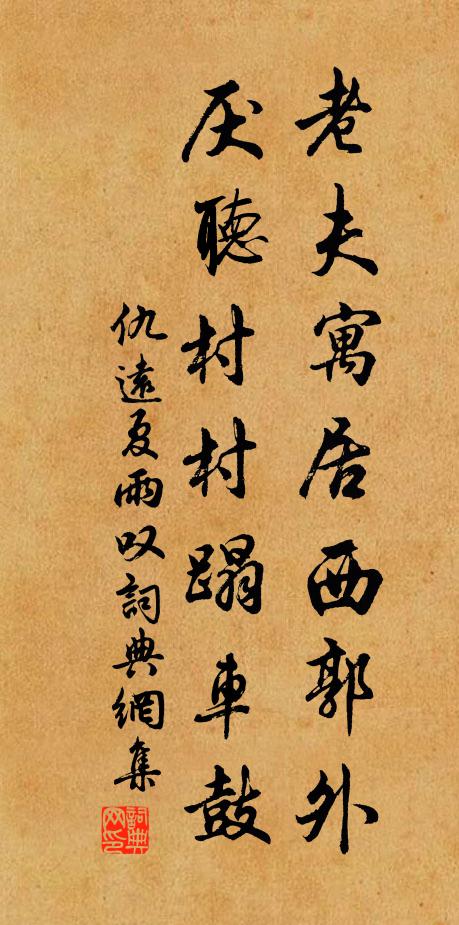 老夫寓居西郭外
厌聽村村蹋車鼓
仇遠夏雨叹詞典網集
詞典网印